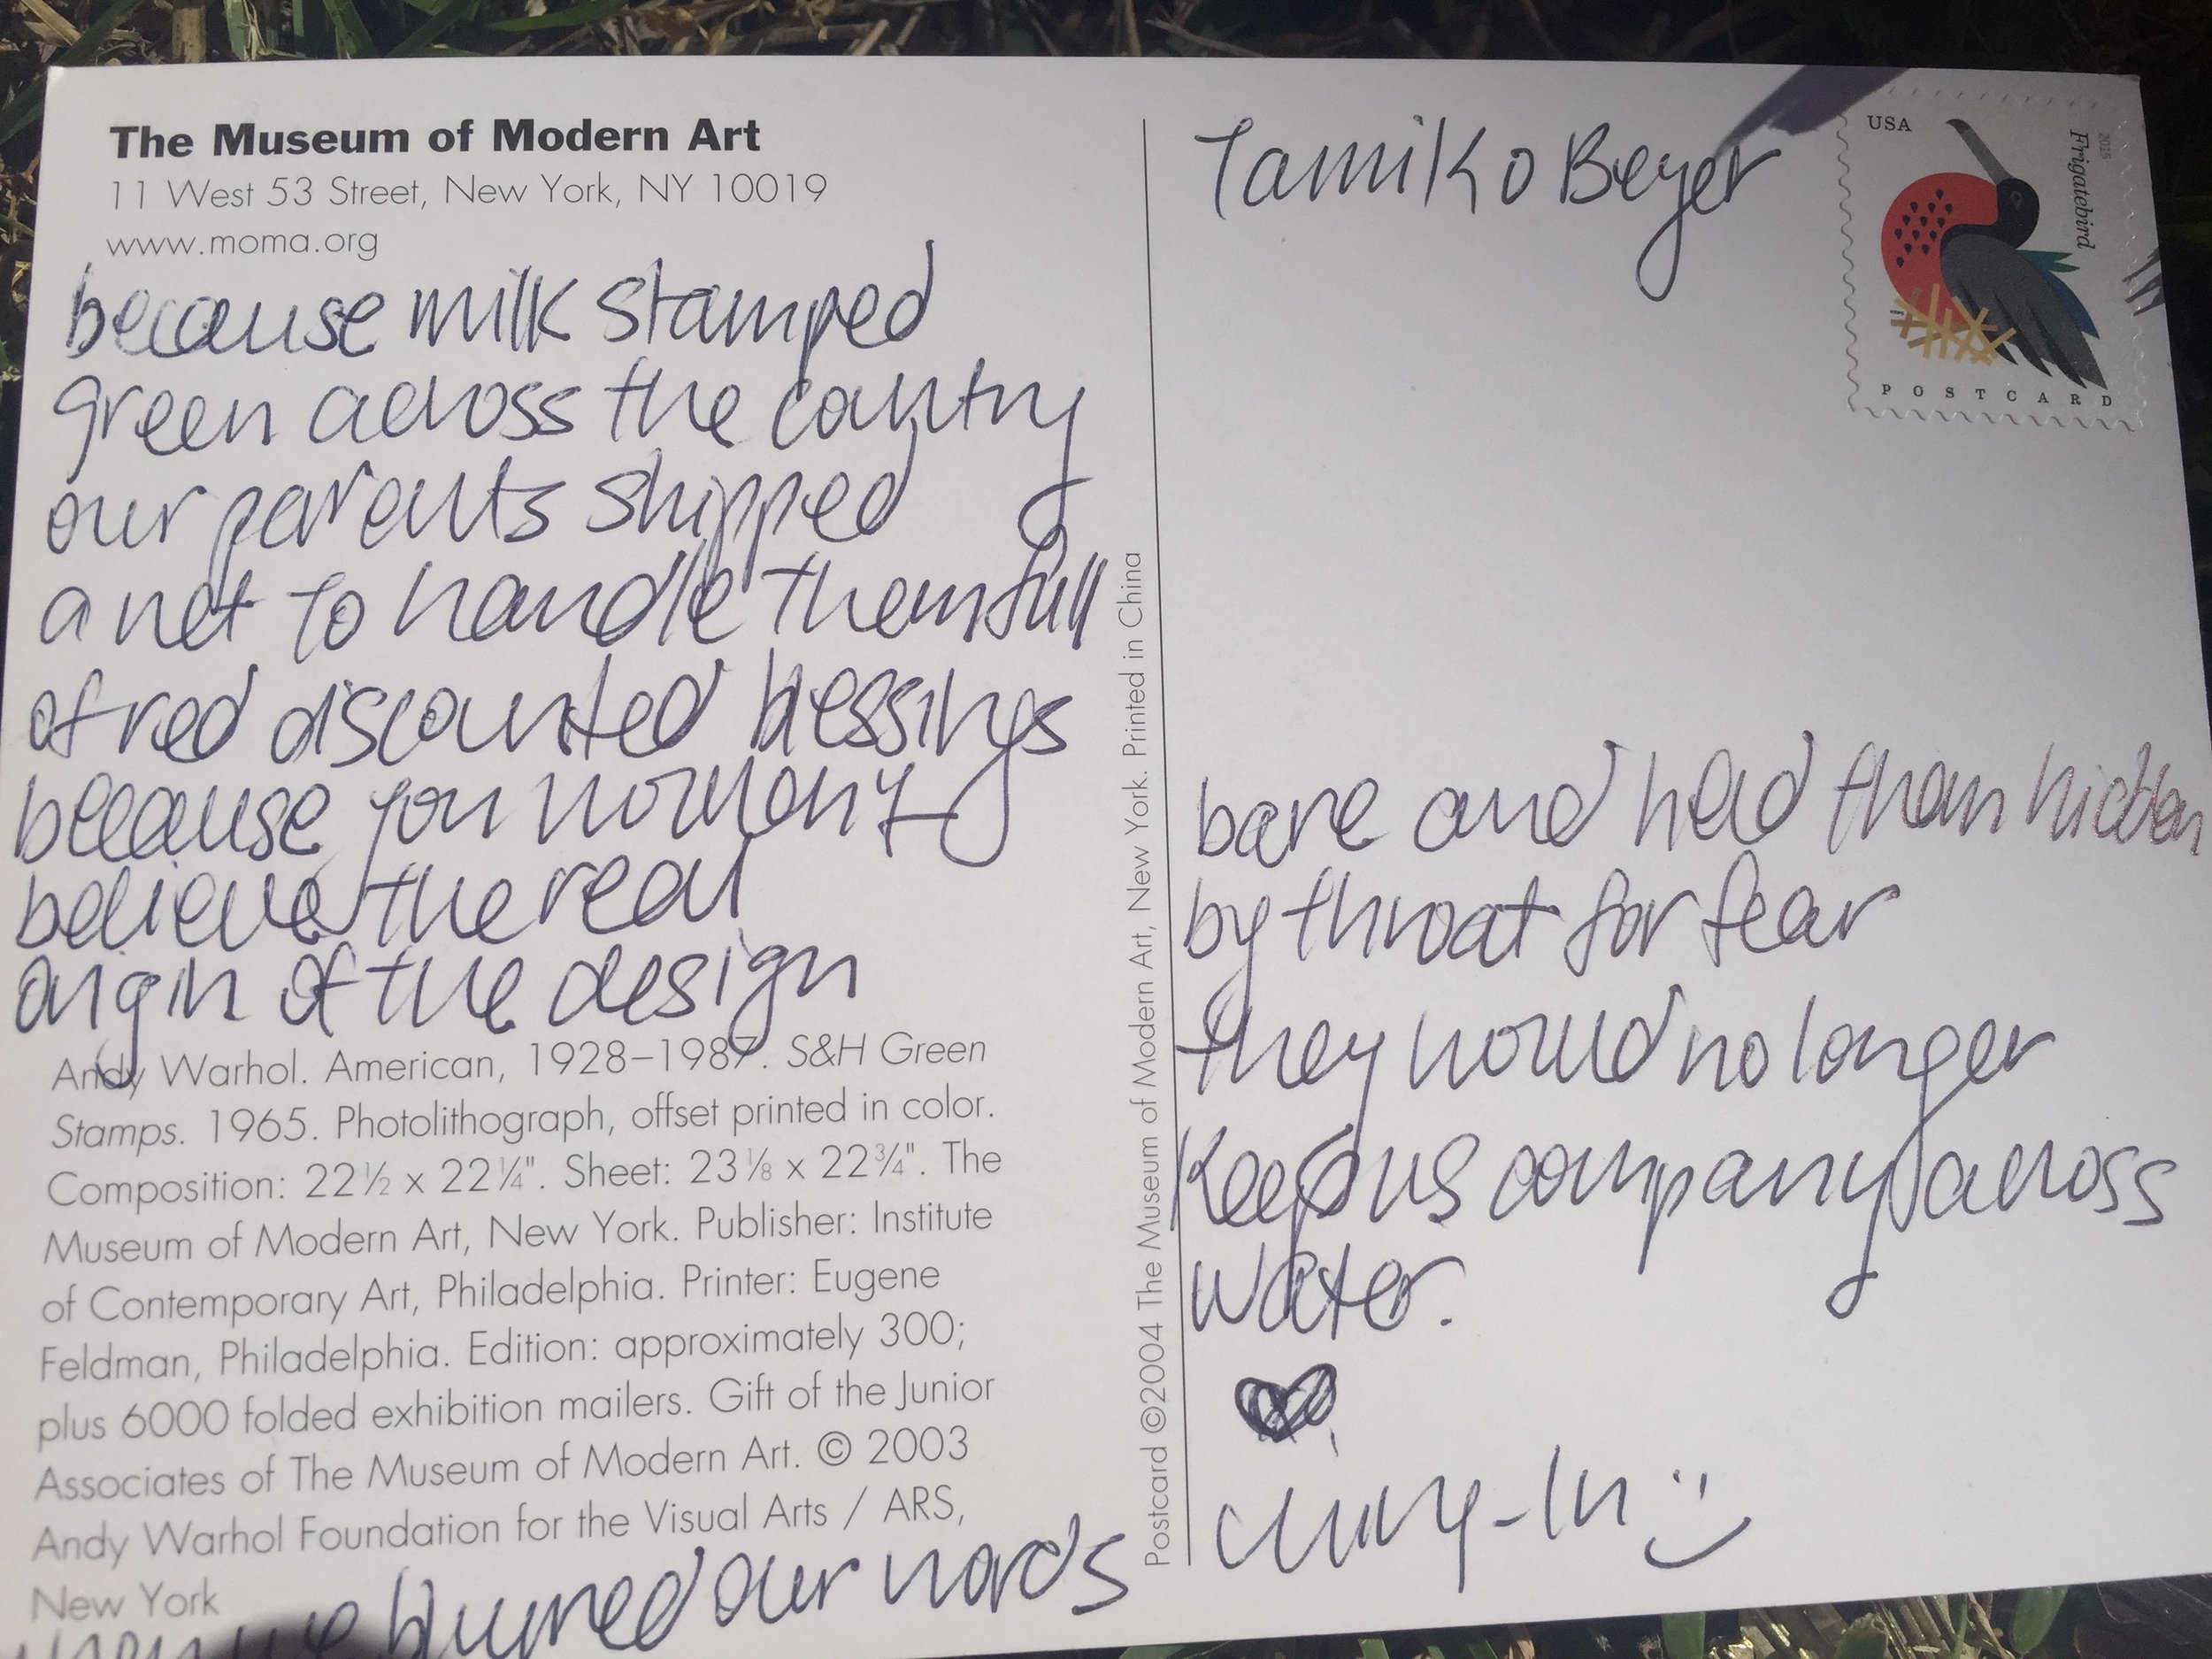 The Museum of Modern Art
11 West 53 Street, New York, NY 10019
www.moma.org
because milk stamped
green across the country
our parents shipped
a net to handle them full
of red discounted blessings
because you
believe the real
origin of the design
Andy Warhol. American, 1928–1987. S&H Green
Stamps. 1965. Photolithograph, offset printed in color.
Composition: 22 ½ x 22 ¼". Sheet: 23 ⅛ x 22 ¾". The
Museum of Modern Art, New York. Publisher: Institute
of Contemporary Art, Philadelphia. Printer: Eugene
Feldman, Philadelphia. Edition: approximately 300;
plus 6000 folded exhibition mailers. Gift of the Junior
Associates of The Museum of Modern Art. © 2003
Andy Warhol Foundation for the Visual Arts / ARS,
New York
when we blurred our words
Postcard ©2004 The Museum of Modern Art, New York. Printed in China
Tamiko Beyer
USA
Frigatebird
2015
POSTCARD
bare and held them hidden
by throat for fear
they would no longer
keep us company across
water.
Ching-In